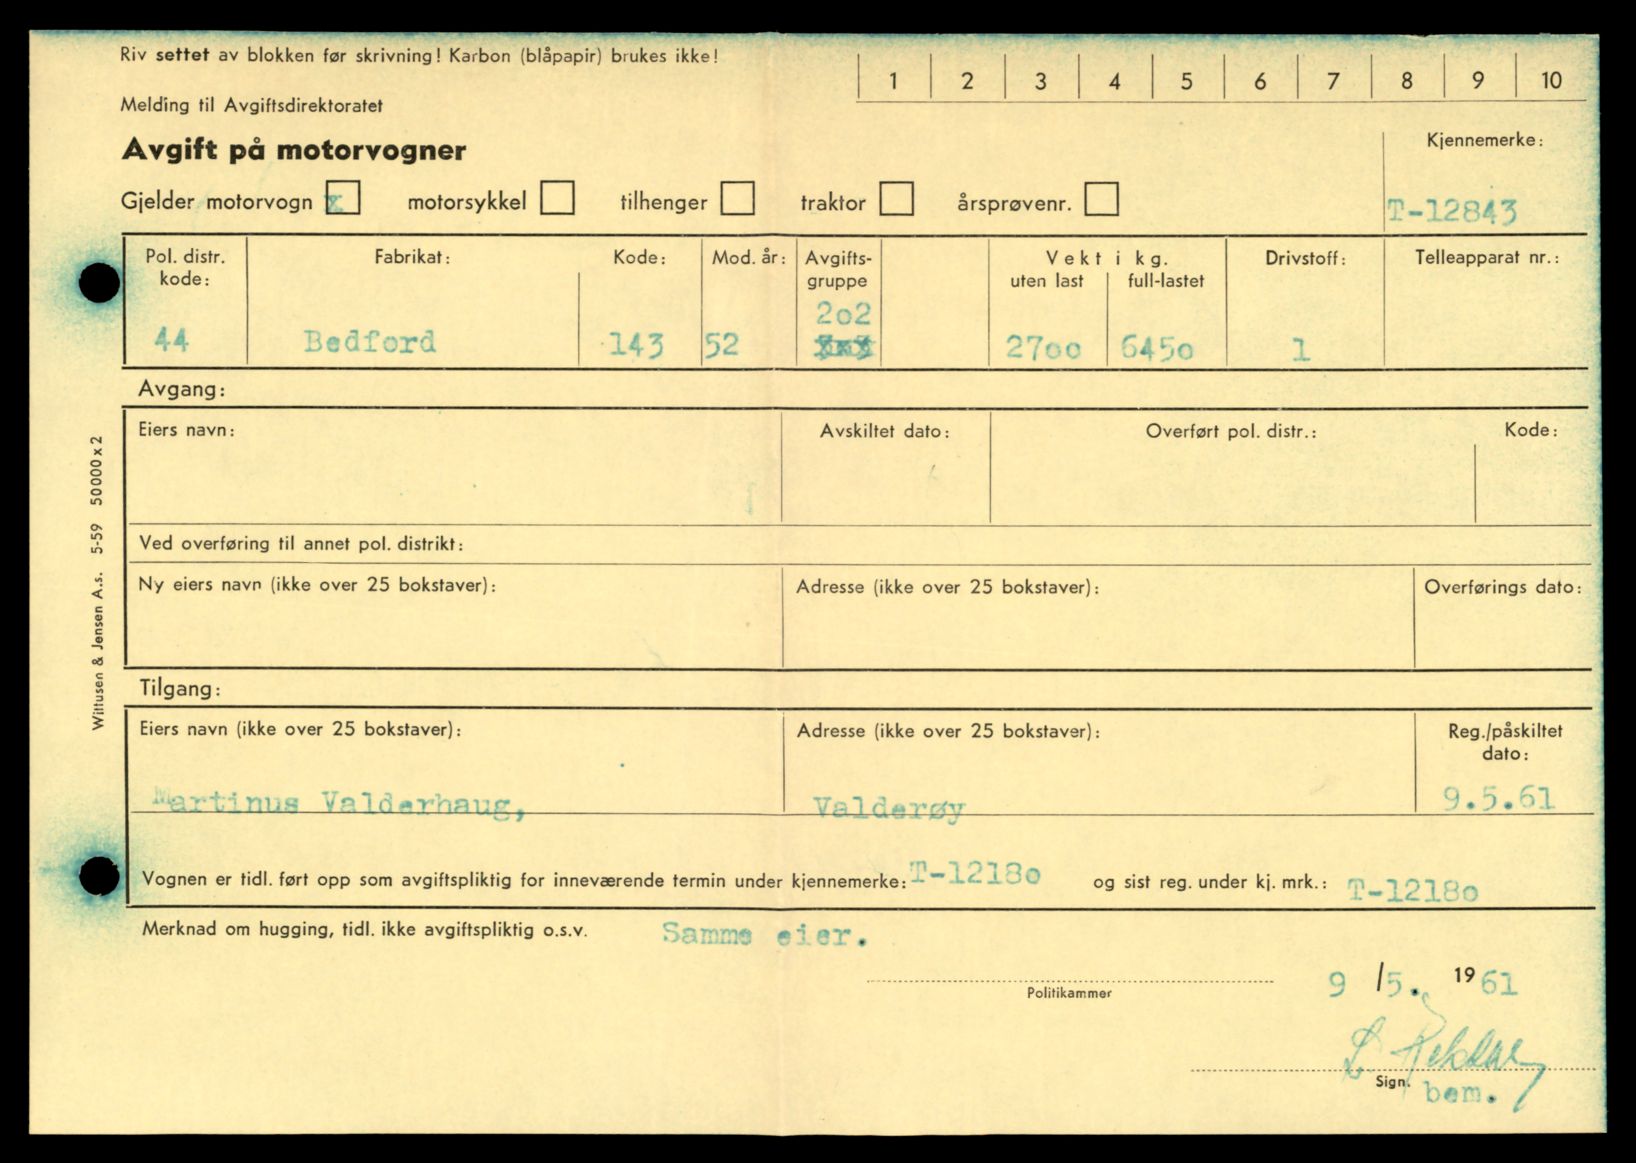 Riv settet av blokken før skrivning! Karbon (blåpapir) brukes ikke!
1 2 3 4 5 6 7 8 9 10
Melding til Avgiftsdirektoratet
Avgift på motorvogner
Kjennemerke:
Gjelder motorvogn x motorsykkel tilhenger traktor årsprøvenr.
T-12843
Pol. distr. kode: Fabrikat: Kode: Mod. år: Avgifts-gruppe Vekt i kg. uten last full-lastet Drivstoff: Telleapparat nr.:
2o2
44 Bedford 143 52 27oo 645o 1
Avgang:
Eiers navn: Avskiltet dato: Overført pol. distr.: Kode:
Ved overføring til annet pol. distrikt:
Ny eiers navn (ikke over 25 bokstaver): Adresse (ikke over 25 bokstaver): Overførings dato:
Tilgang:
Eiers navn (ikke over 25 bokstaver): Adresse (ikke over 25 bokstaver): Reg./påskiltet dato:
Martinus Valderhaug, Valderøy 9.5.61
Vognen er tidl. ført opp som avgiftspliktig for inneværende termin under kjennemerke: T-1218o og sist reg. under kj. mrk.: T-1218o
Merknad om hugging, tidl. ikke avgiftspliktig o.s.v. Samme eier.
9 /5. 1961
Politikammer
Sign.
bem.
Wittusen & Jensen A.s. 5-59 50000x2